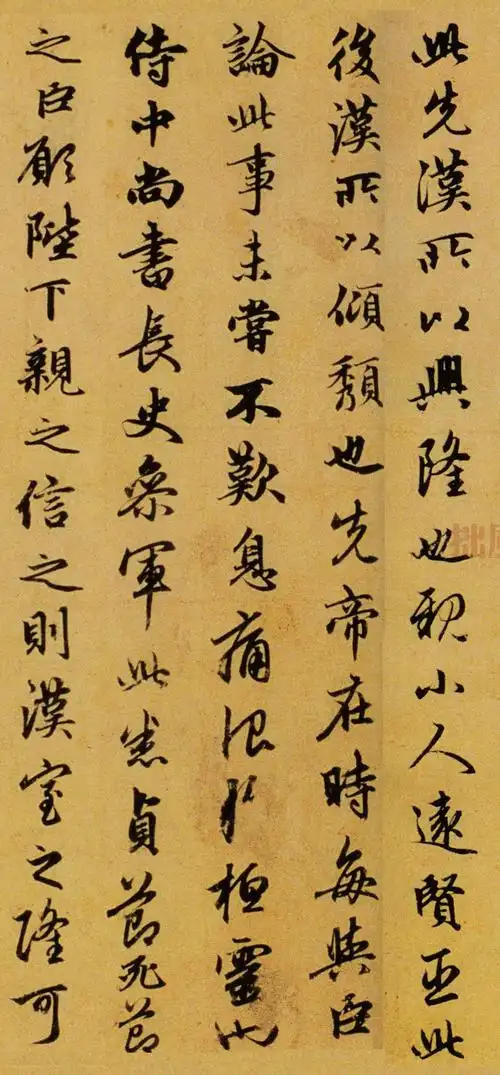 此先漢所以興隆也親小人遠賢臣此
後漢所以傾頹也先帝在時每與臣
論此事未嘗不歎息痛恨於桓靈也
侍中尚書長史參軍此悉貞節死節
之臣願陛下親之信之則漢室之隆可